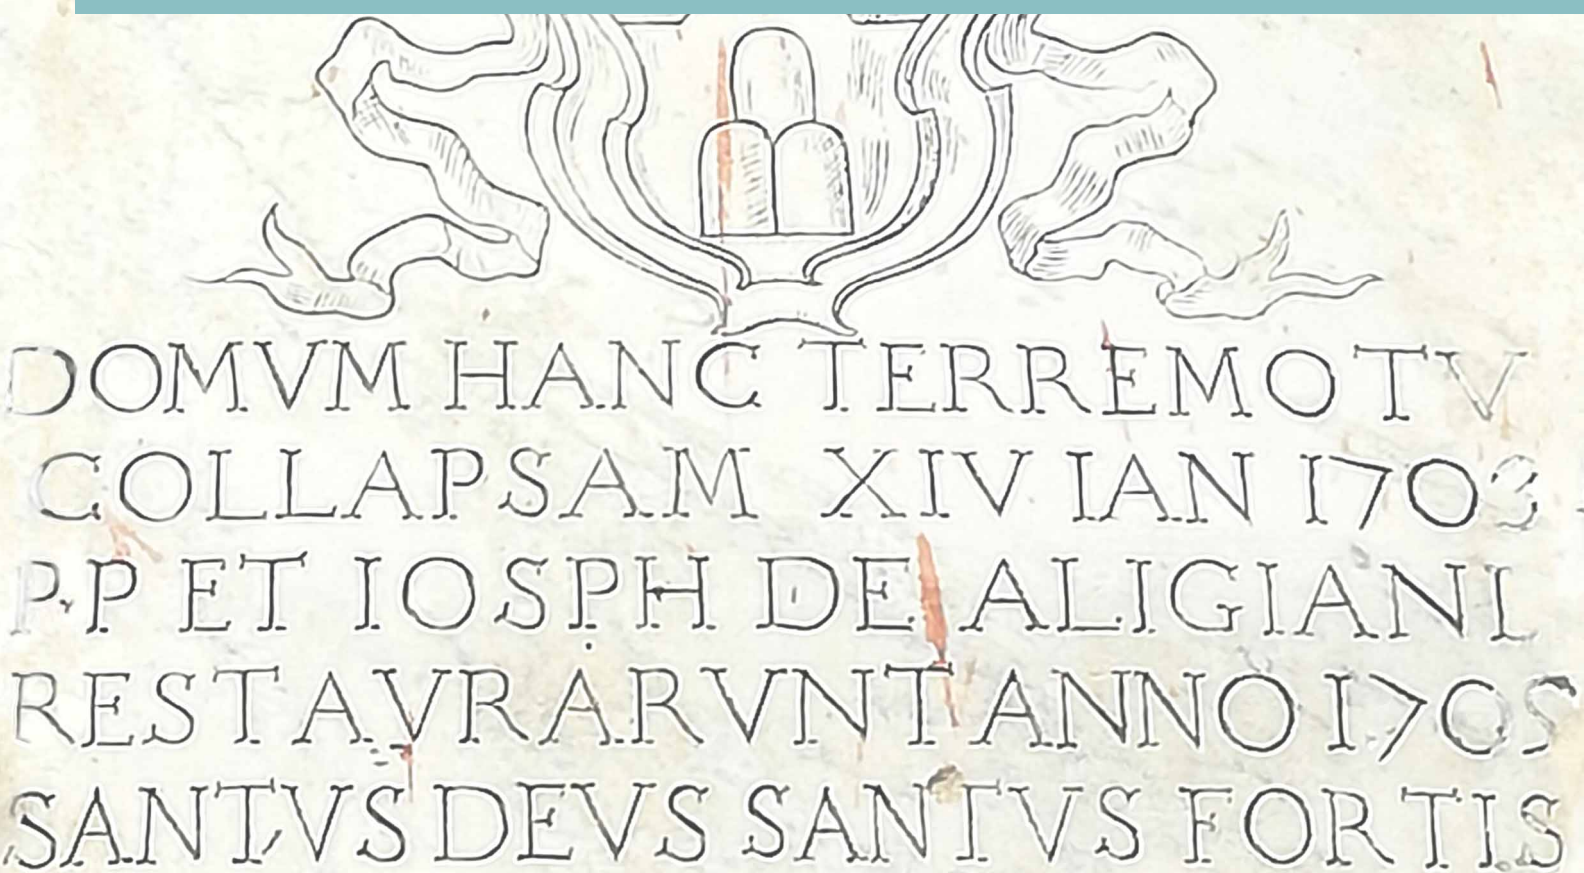 DOMVM HANC TERREMOTV
COLLAPSAM XIV IAN 1703
P.P ET IOSPH DE ALIGIANI
RESTAVRARVNT ANNO 1705
SANTVS DEVS SANTVS FORTIS